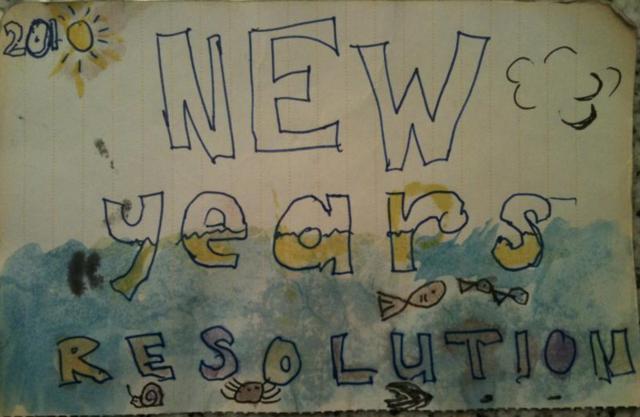 2010
NEW
years
RESOLUTION